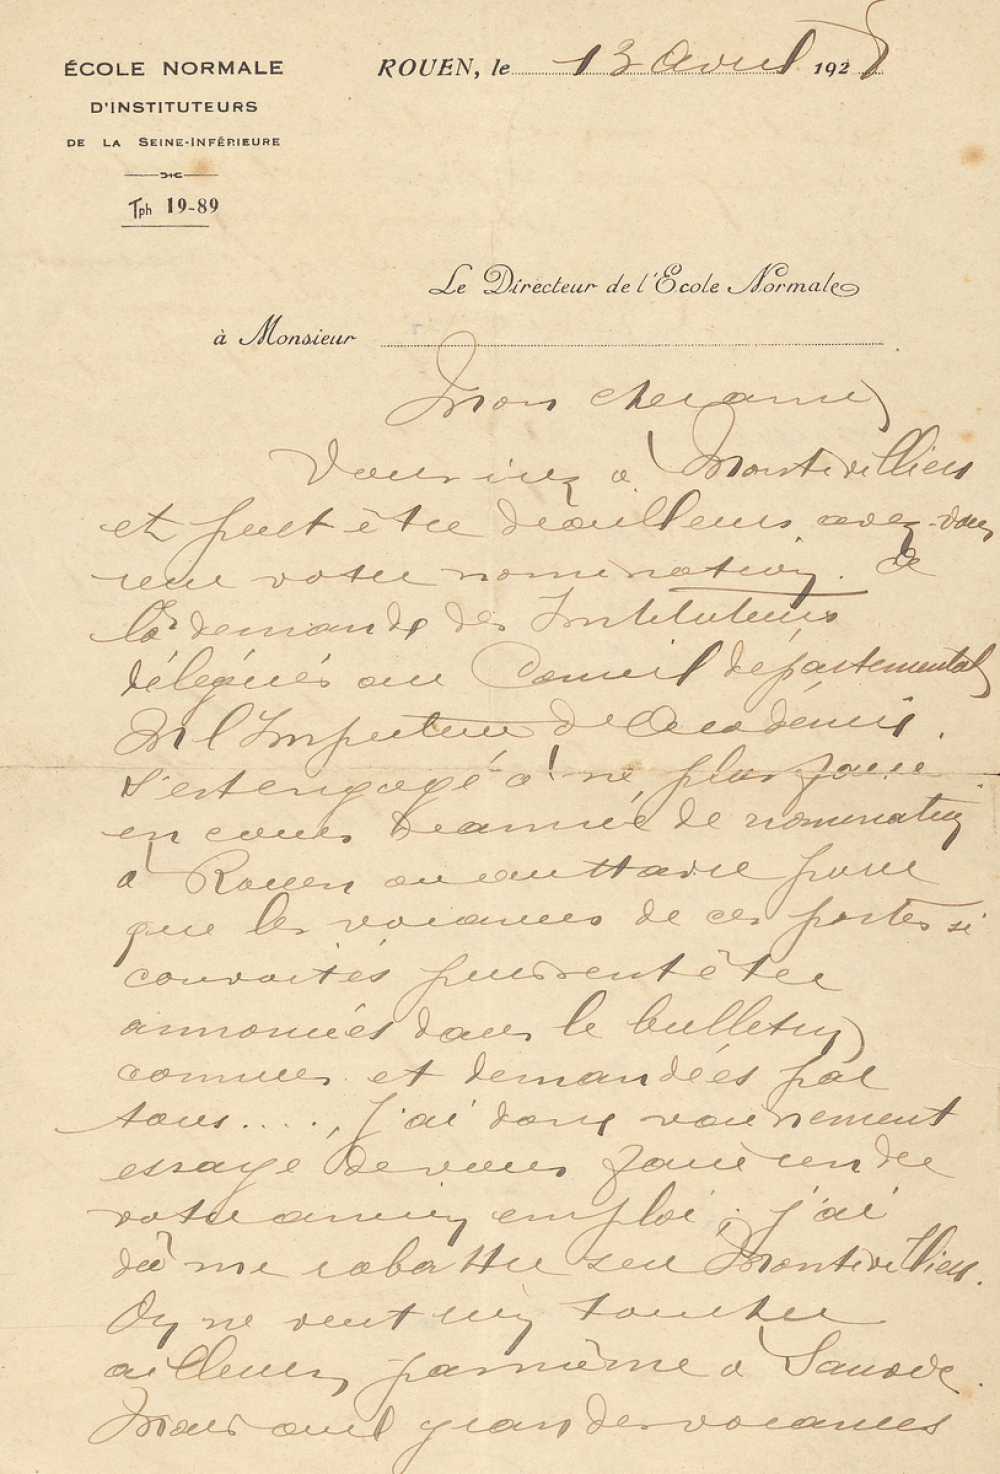 ÉCOLE NORMALE
D'INSTITUTEURS
DE LA SEINE-INFÉRIEURE
Tph 19-89
ROUEN, le 13 Avril 192
Le Directeur de l'Ecole Normale
à Monsieur
Mon cher ami
Vous irez à Montivilliers
et peut être d'ailleurs avez-vous
reçu votre nomination. A
la demande des Instituteurs
délégués au Conseil départemental
M l'Inspecteur d'Académie
s'est engagé à ne plus faire
en cours d'année de nomination
à Rouen ou au Havre pour
que les vacances de ces postes si
convoités puissent être
annoncées dans le bulletin
connues et demandées par
tous...., J'ai donc vainement
essayé de vous faire rendre
votre ancien emploi ; j'ai
dû me rabattre sur Montivilliers.
On ne veut rien toucher
ailleurs, pas même à
Mais aux grandes vacances